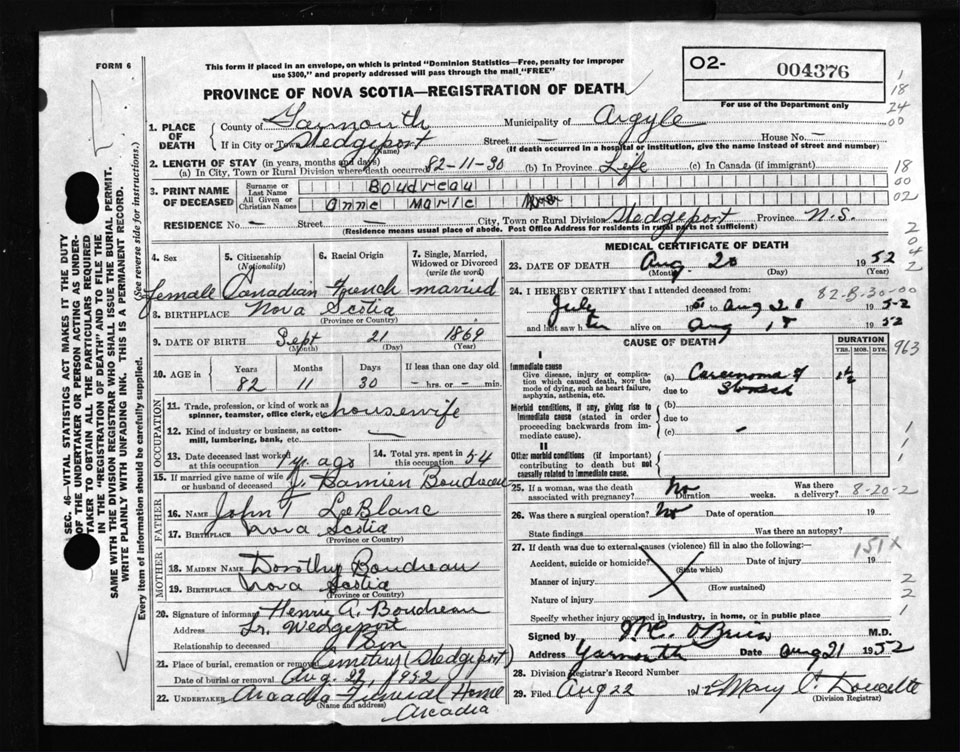 FORM 6
This form if placed in an envelope, on which is printed "Dominion Statistics—Free, penalty for improper
use $300," and properly addressed will pass through the mail "FREE"
PROVINCE OF NOVA SCOTIA—REGISTRATION OF DEATH
O2- 004376
For use of the Department only
1. PLACE OF DEATH
County of Yarmouth Municipality of Argyle
If in City or Town Wedgeport Street — House No. —
(Name) (If death occurred in a hospital or institution, give the name instead of street and number)
2. LENGTH OF STAY (in years, months and days)
(a) In City, Town or Rural Division where death occurred 82-11-30 (b) In Province Life (c) In Canada (if immigrant)
3. PRINT NAME OF DECEASED
Surname or Last Name Boudreau
All Given or Christian Names Anne Marie
RESIDENCE No. — Street — City, Town or Rural Division Wedgeport Province N.S.
(Residence means usual place of abode. Post Office Address for residents in rural parts not sufficient)
4. Sex 5. Citizenship (Nationality) 6. Racial Origin 7. Single, Married, Widowed or Divorced (write the word)
female Canadian French married
8. BIRTHPLACE Nova Scotia
(Province or Country)
9. DATE OF BIRTH Sept 21 1869
(Month) (Day) (Year)
10. AGE in Years Months Days If less than one day old
82 11 30 — hrs. or — min.
OCCUPATION
11. Trade, profession, or kind of work as spinner, teamster, office clerk, etc. housewife
12. Kind of industry or business, as cotton-mill, lumbering, bank, etc. —
13. Date deceased last worked at this occupation 1 yr. ago 14. Total yrs. spent in this occupation 54
15. If married give name of wife or husband of deceased J. Damien Boudreau
FATHER
16. NAME John T LeBlanc
17. BIRTHPLACE Nova Scotia
(Province or Country)
MOTHER
18. MAIDEN NAME Dorothy Boudreau
19. BIRTHPLACE Nova Scotia
(Province or Country)
20. Signature of informant Henry A. Boudreau
Address Lr. Wedgeport
Relationship to deceased Son
21. Place of burial, cremation or removal Cemetery (Wedgeport)
Date of burial or removal Aug. 22, 1952
22. UNDERTAKER Arcadia Funeral Home
(Name and address)
Arcadia
MEDICAL CERTIFICATE OF DEATH
23. DATE OF DEATH Aug. 20 1952
(Month) (Day) (Year)
24. I HEREBY CERTIFY that I attended deceased from:
82-B-30-00
July to Aug 20 1952
and last saw her alive on Aug 18 1952
CAUSE OF DEATH DURATION
YRS. MOS. DYS.
I
Immediate cause
Give disease, injury or complication which caused death, NOT the mode of dying, such as heart failure, asphyxia, asthenia, etc.
(a) Carcinoma of Stomach
due to
Morbid conditions, if any, giving rise to immediate cause (stated in order proceeding backwards from immediate cause)
(b)
due to
(c) —
II
Other morbid conditions (if important) contributing to death but not causally related to immediate cause.
25. If a woman, was the death associated with pregnancy? No Duration weeks. Was there a delivery? 8-20-2
26. Was there a surgical operation? No Date of operation 19
State findings Was there an autopsy?
27. If death was due to external causes (violence) fill in also the following:— 151X
Accident, suicide or homicide? Date of injury 19
(State which)
Manner of injury
(How sustained)
Nature of injury
Specify whether injury occurred in industry, in home, or in public place
Signed by M.C. O'Brien M.D.
Address Yarmouth Date Aug 21 1952
28. Division Registrar's Record Number
29. Filed Aug 22 1952 Mary C. Doucette
(Division Registrar)
SEC. 46—VITAL STATISTICS ACT MAKES IT THE DUTY
OF THE UNDERTAKER OR PERSON ACTING AS UNDER-
TAKER TO OBTAIN ALL THE PARTICULARS REQUIRED
IN THE "REGISTRATION OF DEATH" AND TO FILE THE
SAME WITH THE DIVISION REGISTRAR WHO SHALL ISSUE THE BURIAL PERMIT.
WRITE PLAINLY WITH UNFADING INK. THIS IS A PERMANENT RECORD.
Every item of information should be carefully supplied. (See reverse side for instructions.)
1
18
24
00
18
00
02
2
0
4
2
963
1
1
1
2
2
1